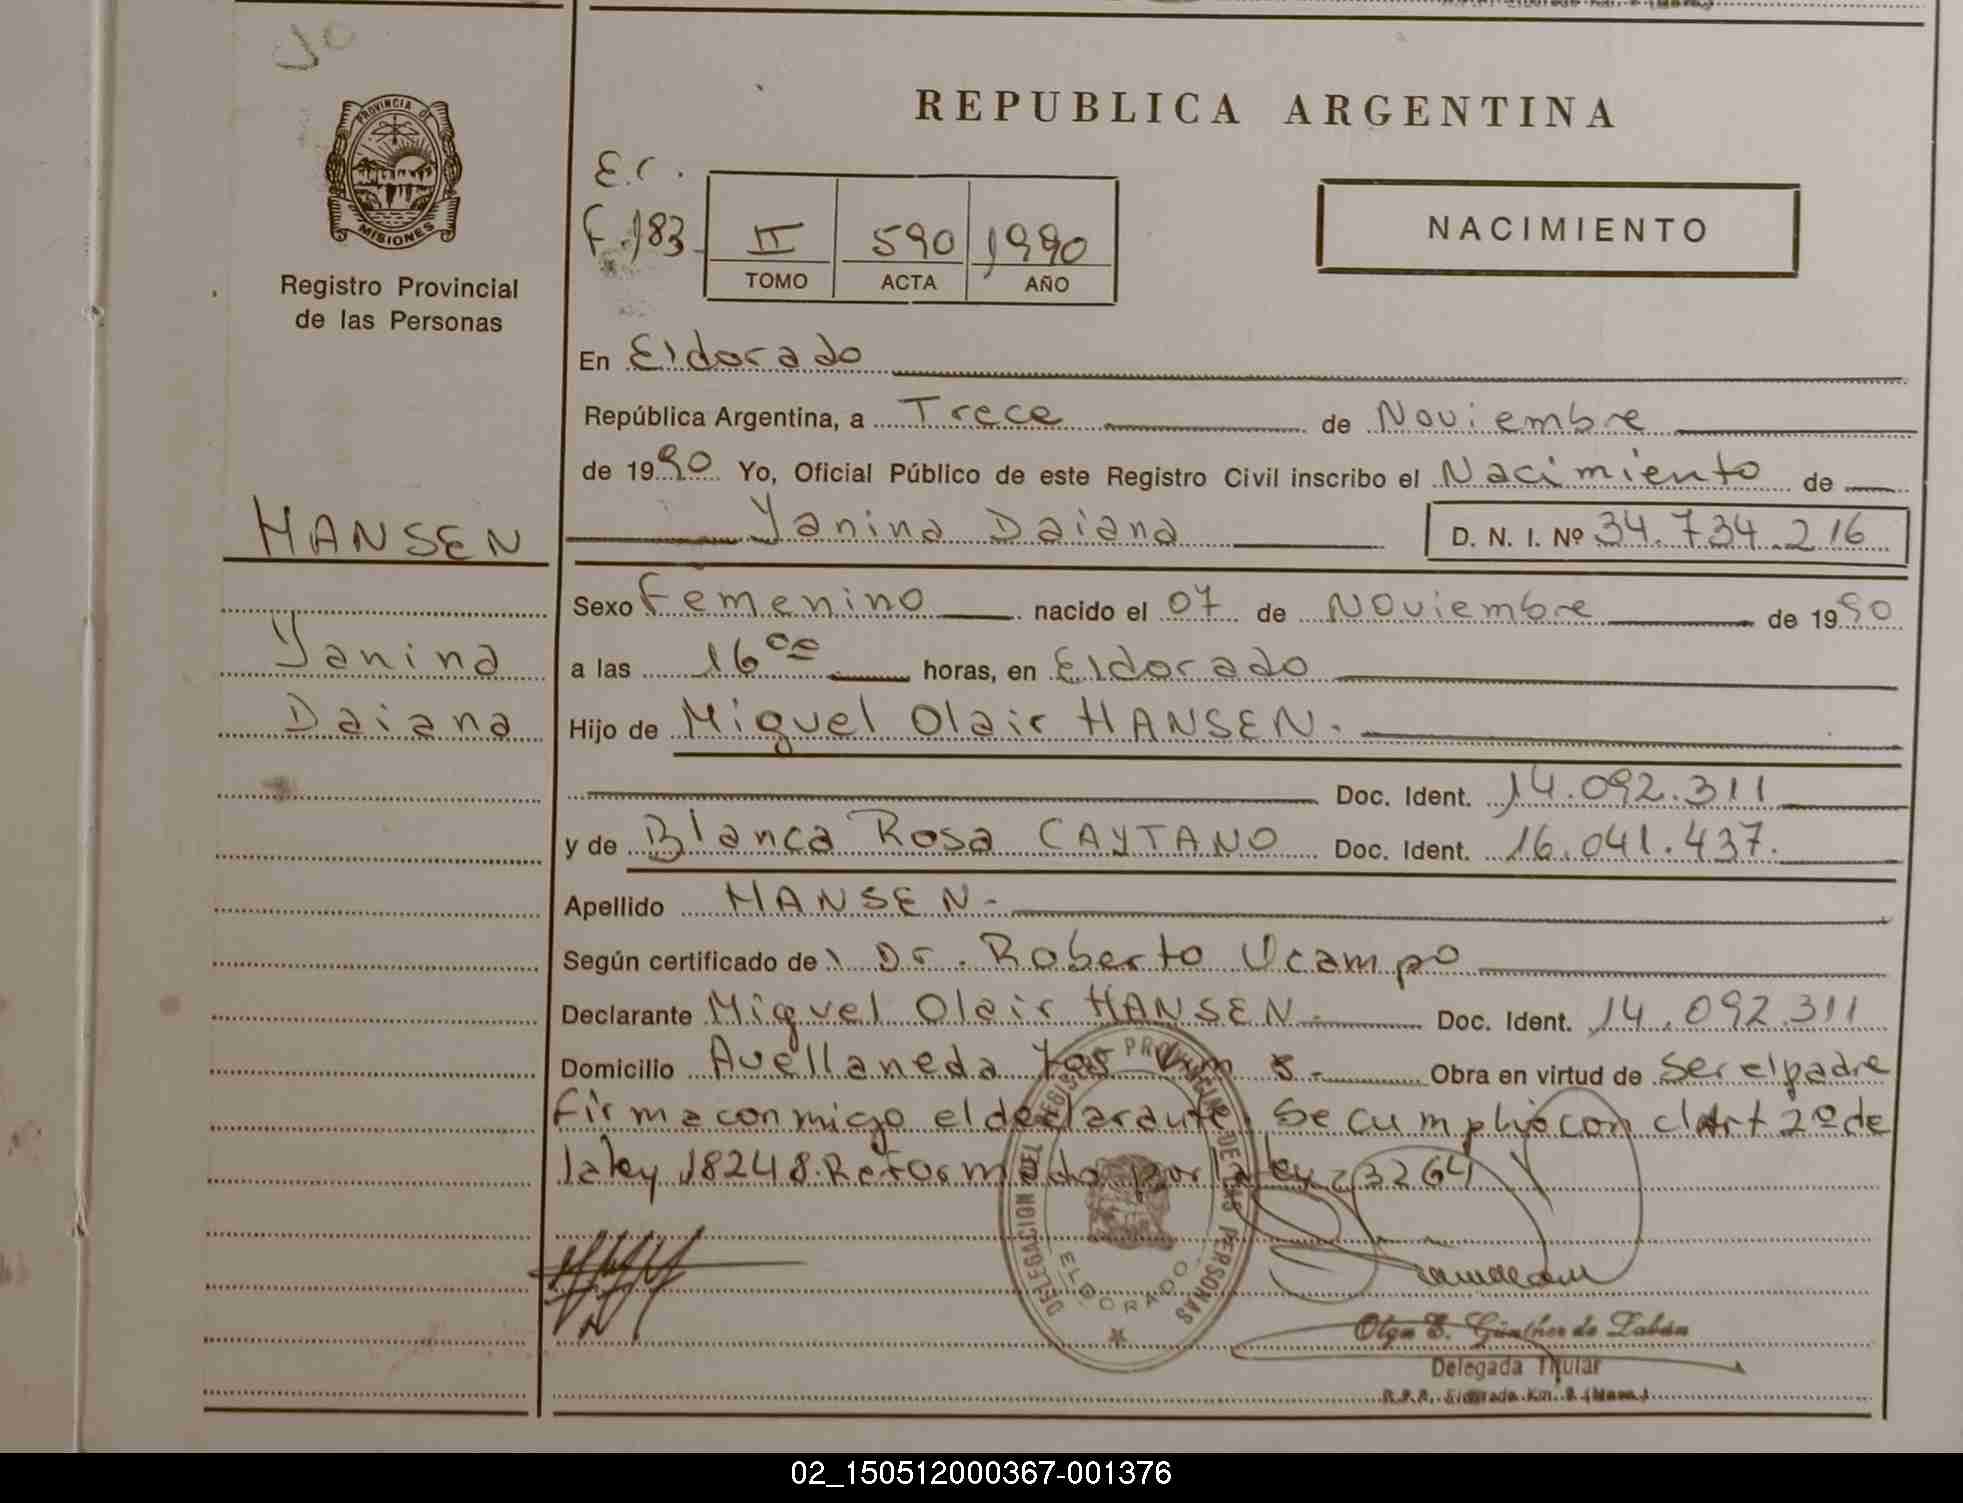 REPUBLICA ARGENTINA
PROVINCIA DE
MISIONES
Registro Provincial
de las Personas
E.C.
F. 183
II 590 1990
TOMO ACTA AÑO
NACIMIENTO
En Eldorado
República Argentina, a Trece de Noviembre
de 1990 Yo, Oficial Público de este Registro Civil inscribo el Nacimiento de
HANSEN
Yanina Daiana D. N. I. Nº 34.734.216
Sexo Femenino nacido el 07 de Noviembre de 1990
Yanina
a las 16 horas, en Eldorado
Daiana
Hijo de Miguel Olair HANSEN.
Doc. Ident. 14.092.311
y de Blanca Rosa CAYTANO Doc. Ident. 16.041.437.
Apellido HANSEN-
Según certificado de Dr. Roberto Ocampo
Declarante Miguel Olair HANSEN.- Doc. Ident. 14.092.311
Domicilio Avellaneda Km 8.- Obra en virtud de ser el padre
firma conmigo el declarante. Se cumplió con el Art 2º de
la ley 18248. Reformado por la ley 23264
DELEGACION DEL REGISTRO PROVINCIAL DE LAS PERSONAS
ELDORADO
Olga E. Günther de Zabán
Delegada Titular
R.P.P. Eldorado Km. 8 (Mnes.)
02_150512000367-001376